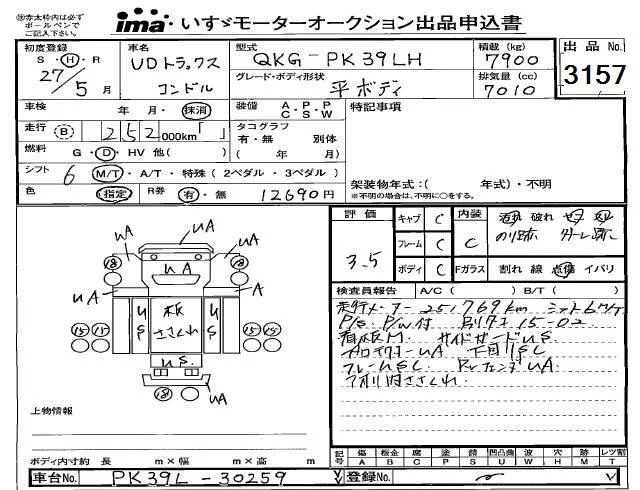 ※赤太枠内は必ず
ボールペンで
ご記入下さい。
ima いすゞモーターオークション出品申込書
初度登録 S・H・R
27/5月
車名 UDトラックス コンドル
型式 QKG-PK39LH
グレード・ボディ形状 平ボディ
積載(kg) 7900
排気量(cc) 7010
出品No. 3157
車検 年・月・抹消
装備 A.P.P C.S.W
特記事項
走行 B 252000km「 」
タコグラフ 有・無 別体
( 年 月)
燃料 G・D・HV 他( )
シフト 6 M/T・A/T・特殊(2ペダル・3ペダル)
架装物年式:( 年式)・不明
※不明の場合は、不明に○をする。
色 指定 R券 有・無 12690円
UA UA
18 UA 18
UA UA
US 板 ささくれ US
15 15 15 15
US
18 UA
上物情報
ボディ内寸約 長 m×幅 m×高 m
評価 3.5
キャブ C
フレーム C
ボディ C
内装 C
破れ
のり跡
Fガラス 割れ 線 点傷 イバリ
検査員報告 A/C( ) B/T( )
走行メーター 251,769km
P/S. P/W付 15-02
サイドガードUS
UA 下回りSC
フレームUSC UA
アオリ内ささくれ
記号 傷A 板金B 腐C 塗P 錆S 凹凸曲U 波W 穴H 跡M レツ割T
車台No. PK39L-30259
登録No.